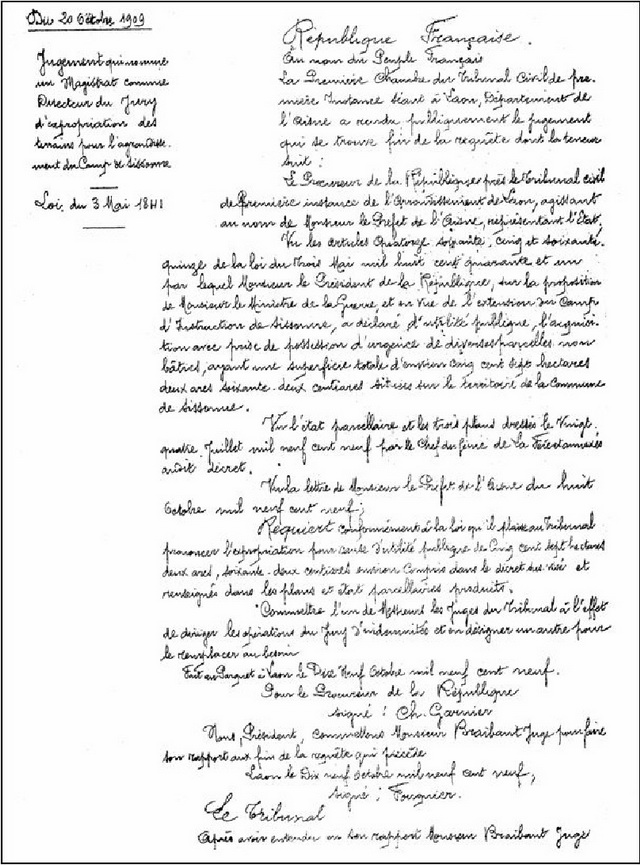 Du 20 Octobre 1909
Jugement qui nomme
un Magistrat comme
Directeur du Jury
d'expropriation des
terrains pour l'agrandisse-
ment du Camp de Sissonne
Loi du 3 Mai 1841
République Française.
Au nom du Peuple Français
La Première Chambre du Tribunal Civil de pre-
mière Instance séant à Laon, Département de
l'Aisne a rendu publiquement le jugement
qui se trouve fin de la requête dont la teneur
suit :
Le Procureur de la République près le Tribunal civil
de Première instance de l'Arrondissement de Laon, agissant
au nom de Monsieur le Préfet de l'Aisne, représentant l'Etat,
Vu les articles quatorze, soixante, cinq et soixante
quinze de la loi du Trois Mai mil huit cent quarante et un
par lequel Monsieur le Président de la République, sur la proposition
de Monsieur le Ministre de la Guerre et en vue de l'extension du Camp
d'Instruction de Sissonne, a déclaré d'utilité publique, l'acquisi-
tion avec prise de possession d'urgence de diverses parcelles non
bâties, ayant une superficie totale d'environ cinq cent sept hectares
deux ares soixante-deux centiares situées sur le territoire de la Commune
de Sissonne.
Vu l'état parcellaire et les trois plans dressés le Vingt
quatre Juillet mil neuf cent neuf par le Chef du Génie de La Fère annexés
audit décret.
Vu la lettre de Monsieur le Préfet de l'Aisne du huit
Octobre mil neuf cent neuf;
Requiert conformément à la loi qu'il plaise au Tribunal
prononcer l'expropriation pour cause d'utilité publique de Cinq cent sept hectares
deux ares, soixante-deux centiares environ compris dans le décret sus visé et
renseignés dans les plans et état parcellaires produits.
Commettre l'un de Messieurs les Juges du Tribunal à l'effet
de diriger les opérations du Jury d'indemnités et en désigner un autre pour
le remplacer au besoin
Fait au Parquet à Laon le Dix Neuf Octobre mil neuf cent neuf.
Pour le Procureur de la République
signé : Ch. Garnier
Nous, Président, Commettons Monsieur Braibant Juge pour faire
son rapport aux fin de la requête qui précède
Laon le Dix neuf octobre mil neuf cent neuf;
signé ; Fouquier.
Le Tribunal
Après avoir entendu en son rapport Monsieur Braibant Juge